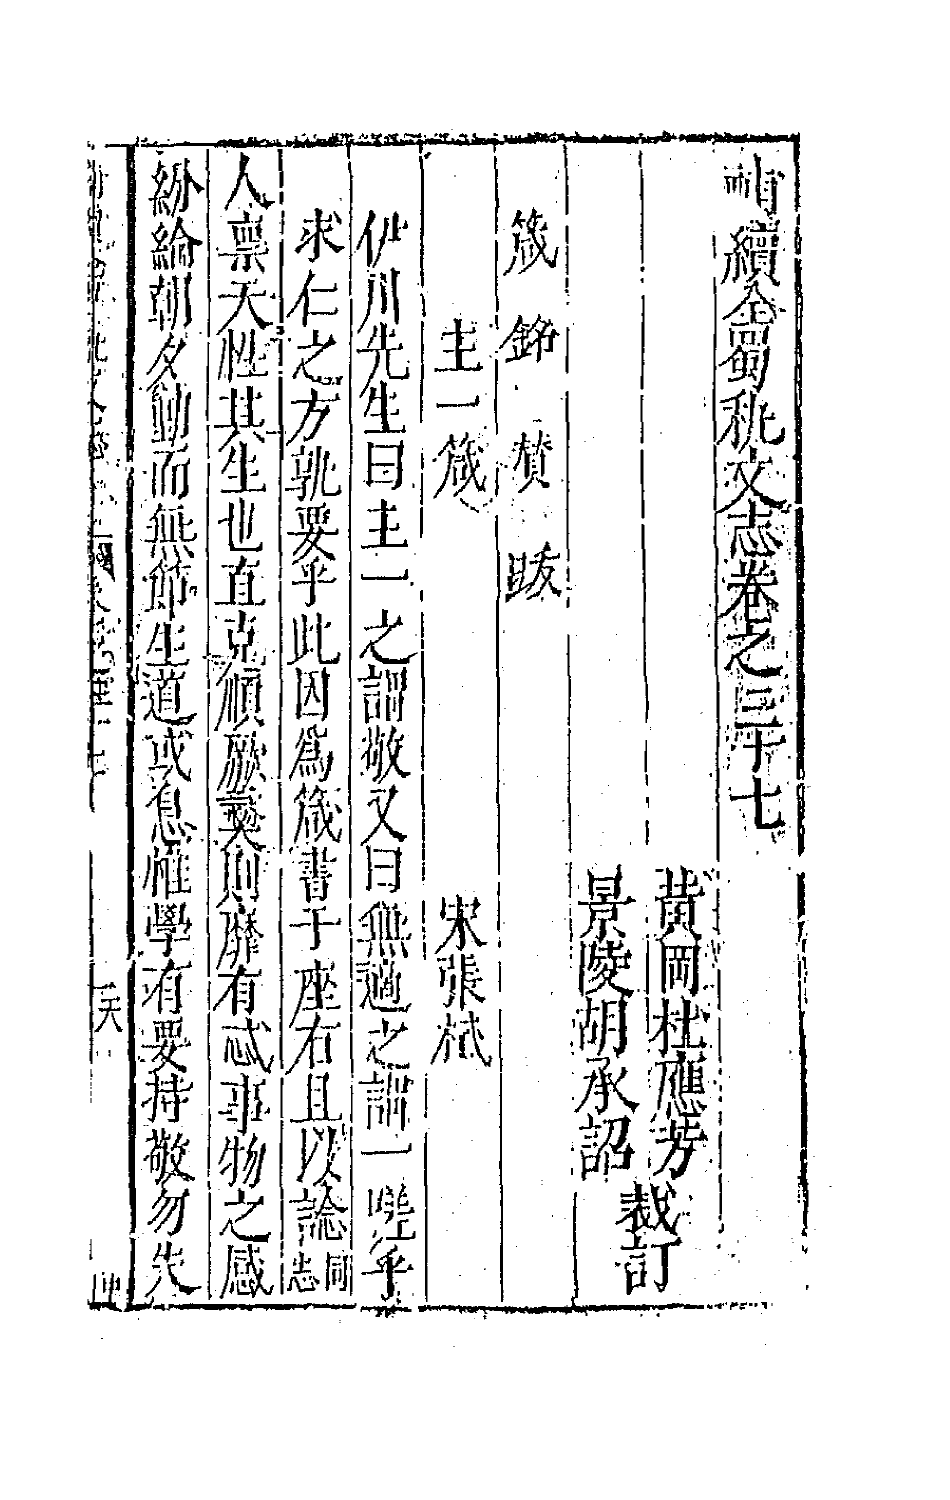 補續全蜀秇文志卷之三十七
黃岡杜應芳
景陵胡承詔
裁訂
箴 銘 賛 跋
主一箴
宋張栻
伊川先生曰主一之謂敬又曰無適之謂一嗟乎
求仁之方孰要乎此因爲箴書于座右且以諗同志
人禀天性其生也直克順厥彝則靡有忒事物之感
紛綸朝夕動而無節生道或息惟學有要持敬勿失